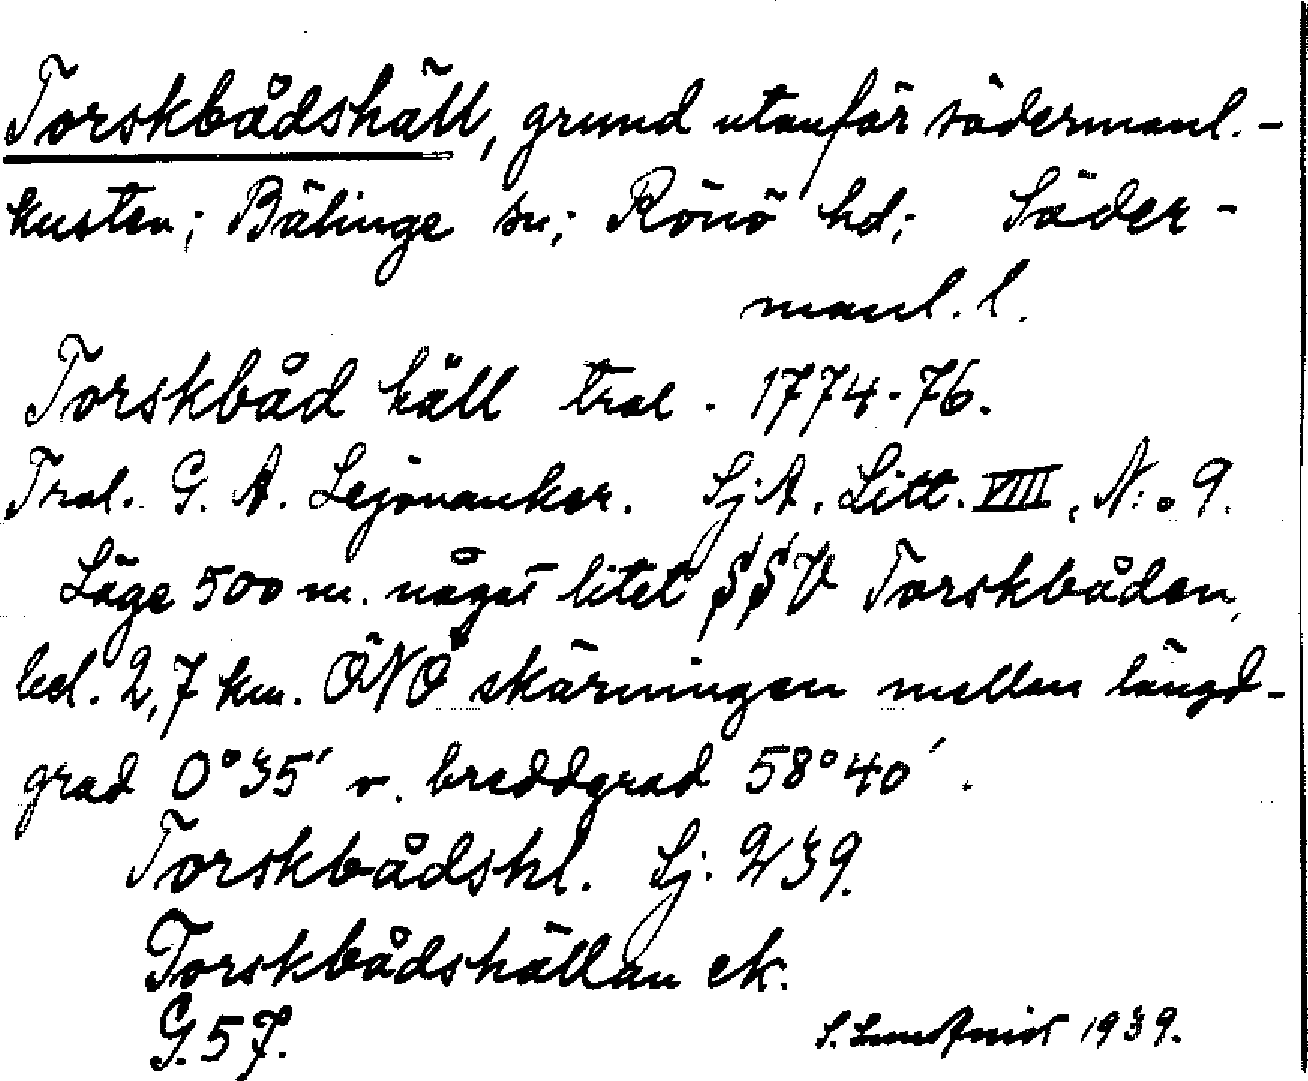 Torskbådshäll, grund utanför södermanl.-
kusten; Bälinge sn; Rönö hd; Söder-
manl. l.
Torskbåd häll tral. 1774-76.
Tral. G. A. Lejonanker. Sj.A. Litt. VIII, N:o 9.
Läge 500 m. något litet SSV Torskbåden,
bel. 2,7 km. ÖNÖ skärningen mellan längd-
grad 0°35' v. breddgrad 58°40'.
Torskbådshl. Sj: 239.
Torskbådshällan ek.
G.57.
S. 1939.